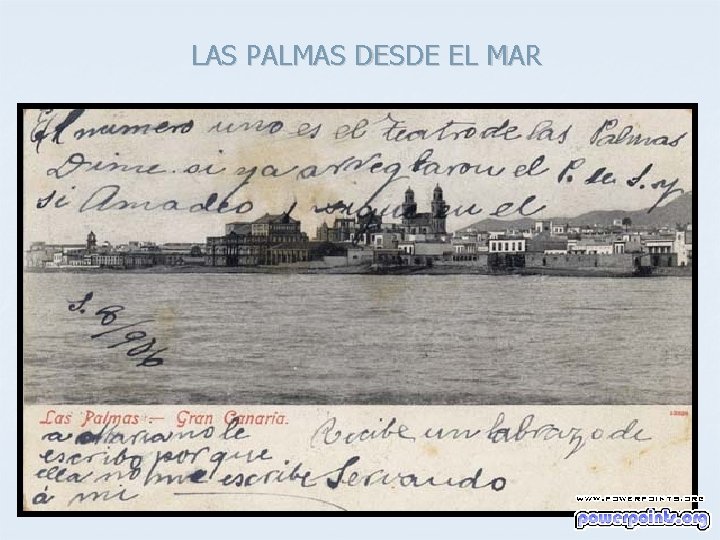 LAS PALMAS DESDE EL MAR
El numero uno es el Teatro de las Palmas
Dime si ya arreglaron el P. de S. y
si Amadeo sigue en el
8/906
Las Palmas — Gran Canaria.
a Mariano le
escribo porque
ella no me escribe
á mi
Recibe un abrazo de
Servando
WWW.POWERPOINTS.ORG
powerpoints.org